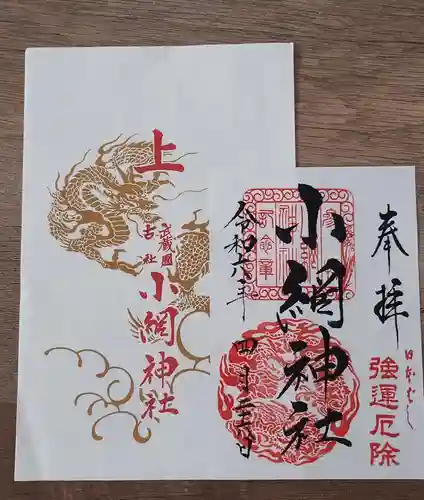 上
武蔵国
古社
小網神社
奉拝
日本ばし
強運厄除
小網神社
令和六年
四月二十六日